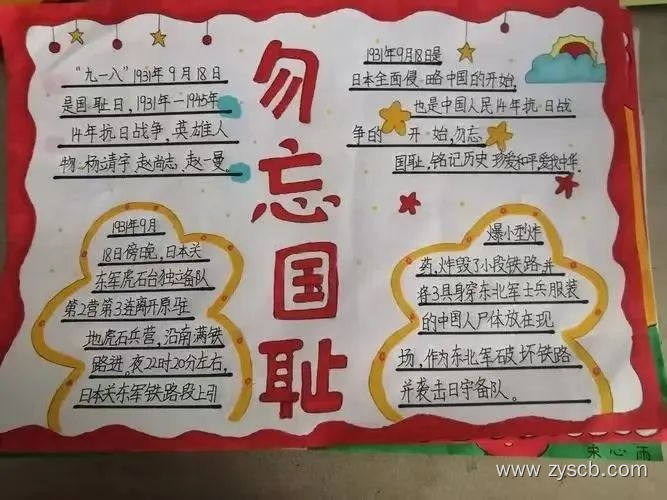 勿忘国耻
"九一八"1931年9月18日
是国耻日,1931年—1945年
14年抗日战争,英雄人
物:杨靖宇 赵尚志 赵一曼。
1931年9月18日是
日本全面侵略中国的开始,
也是中国人民14年抗日战
争的开始,勿忘
国耻,铭记历史 珍爱和平,爱我中华.
1931年9月
18日傍晚,日本关
东军虎石台独立备队
第2营第3连离开原驻
地虎石兵营,沿南满铁
路进,夜22时20分左右,
日本关东军铁路段上引
爆小型炸
药,炸毁了小段铁路并
将3具身穿东北军士兵服装
的中国人尸体放在现
场,作为东北军破坏铁路
并袭击日守备队。
宋心雨
www.zyscb.com